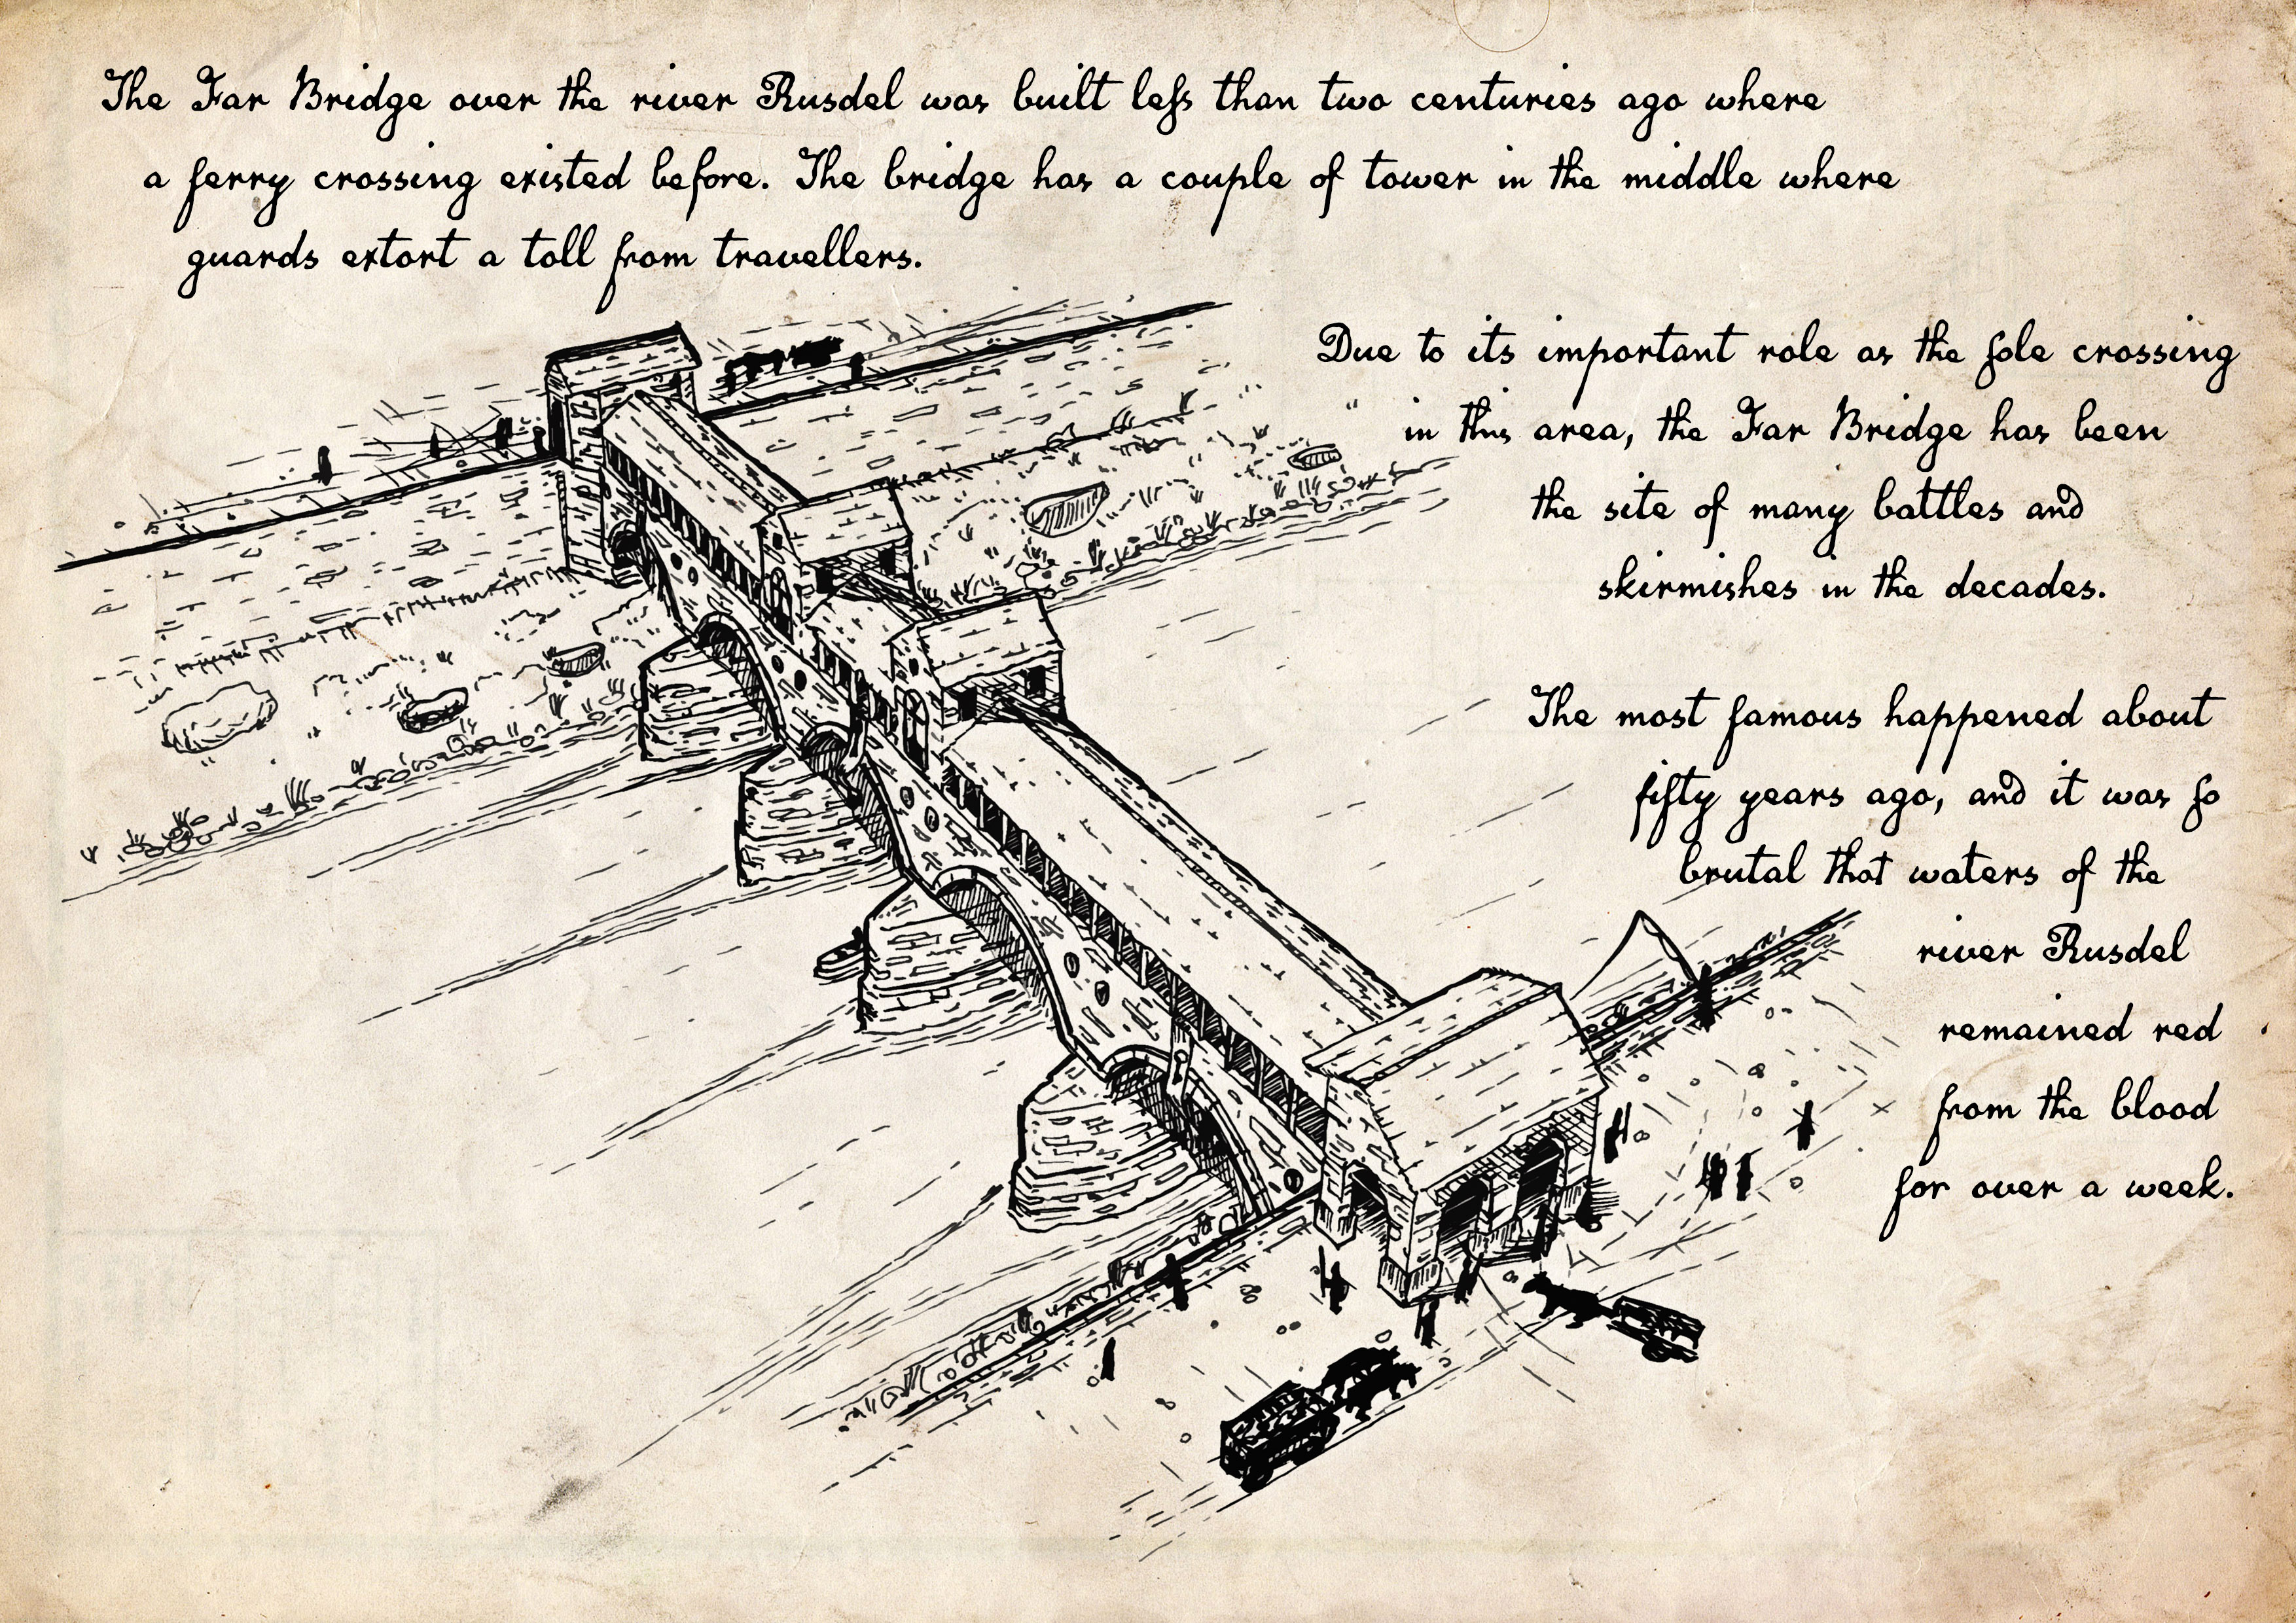 The Far Bridge over the river Rusdel was built leſs than two centuries ago where
a ferry crossing existed before. The bridge has a couple of tower in the middle where
guards extort a toll from travellers.
Due to its important role as the ſole crossing
in this area, the Far Bridge has been
the site of many battles and
skirmishes in the decades.
The most famous happened about
fifty years ago, and it was ſo
brutal that waters of the
river Rusdel
remained red
from the blood
for over a week.